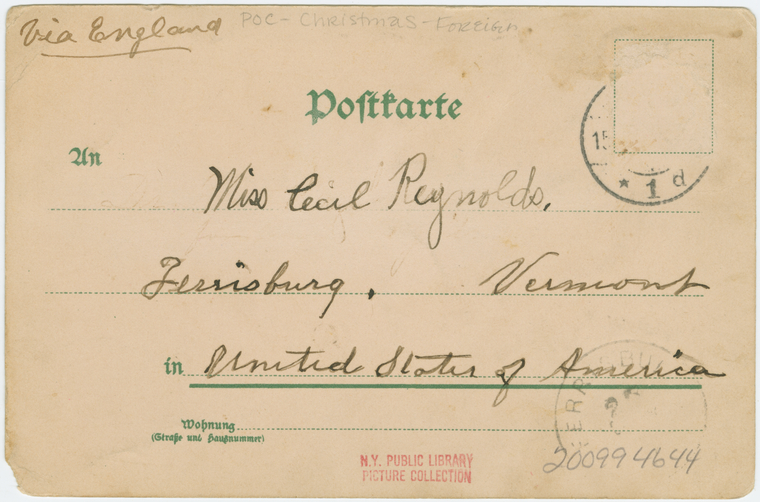 Via England
POC - Christmas - Foreign
Postkarte
15
* 1 d
An
Miss Cecil Reynolds.
Ferrisburg, Vermont
in United States of America
Wohnung
(Straße und Hausnummer)
N.Y. PUBLIC LIBRARY
PICTURE COLLECTION
200994644